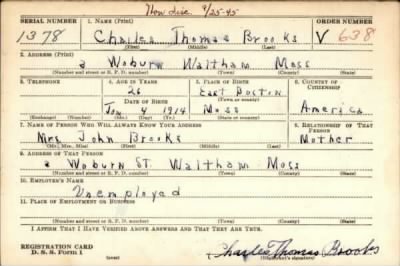 Now Live 9/25-45
SERIAL NUMBER 1. NAME (Print) ORDER NUMBER
1378 Charles Thomas Brooks V 638
(First) (Middle) (Last)
2. ADDRESS (Print)
2 Woburn Waltham Mass
(Number and street or R. F. D. number) (Town) (County) (State)
3. TELEPHONE 4. AGE IN YEARS 5. PLACE OF BIRTH 6. COUNTRY OF CITIZENSHIP
26 East Boston
DATE OF BIRTH (Town or county)
Jan 4 1914 Mass America
(Exchange) (No.) (Mo.) (Day) (Yr.) (State or country)
7. NAME OF PERSON WHO WILL ALWAYS KNOW YOUR ADDRESS 8. RELATIONSHIP OF THAT PERSON
Mrs John Brooks Mother
(Mr., Mrs., Miss) (First) (Middle) (Last)
9. ADDRESS OF THAT PERSON
2 Woburn St. Waltham Mass
(Number and street or R. F. D. number) (Town) (County) (State)
10. EMPLOYER'S NAME
Unemployed
11. PLACE OF EMPLOYMENT OR BUSINESS
(Number and street or R. F. D. number) (Town) (County) (State)
I AFFIRM THAT I HAVE VERIFIED ABOVE ANSWERS AND THAT THEY ARE TRUE.
REGISTRATION CARD
D. S. S. Form 1 (over) Charles Thomas Brooks
(Registrant's signature)